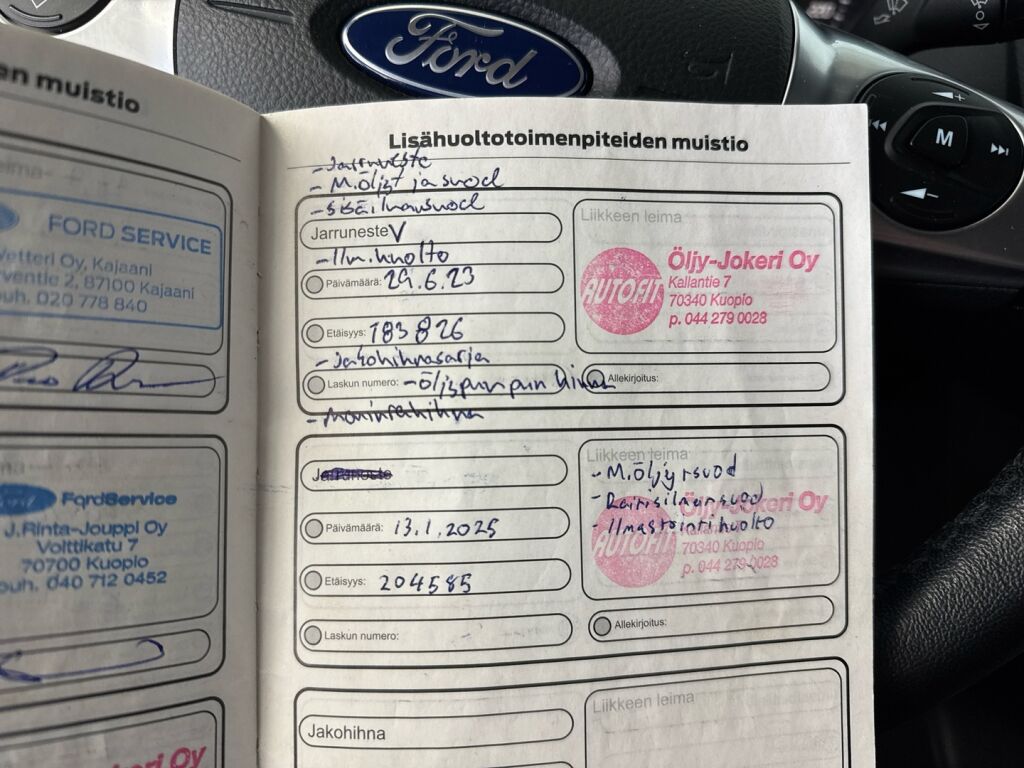 Ford
M
en muistio
FORD SERVICE
Vetteri Oy, Kajaani
rventie 2, 87100 Kajaani
puh. 020 778 840
FordService
J.Rinta-Jouppi Oy
Volttikatu 7
70700 Kuopio
puh. 040 712 0452
keri Oy
Lisähuoltotoimenpiteiden muistio
- Jarruneste
- M.öljyt ja suod
- sisäilmasuod
Jarruneste V
- Ilm.huolto
Päivämäärä: 29.6.23
Etäisyys: 183826
- Jakohihnasarja
Laskun numero: - Öljypumpun hihna
- moniurahihna
Liikkeen leima
AUTOFIT
Öljy-Jokeri Oy
Kallantie 7
70340 Kuopio
p. 044 279 0028
Allekirjoitus:
Jarruneste
Päivämäärä: 13.1.2025
Etäisyys: 204585
Laskun numero:
Liikkeen leima
- M.öljy + suod
- Raitisilmansuod
- Ilmastointihuolto
AUTOFIT
Öljy-Jokeri Oy
Kallantie 7
70340 Kuopio
p. 044 279 0028
Allekirjoitus:
Jakohihna
Liikkeen leima